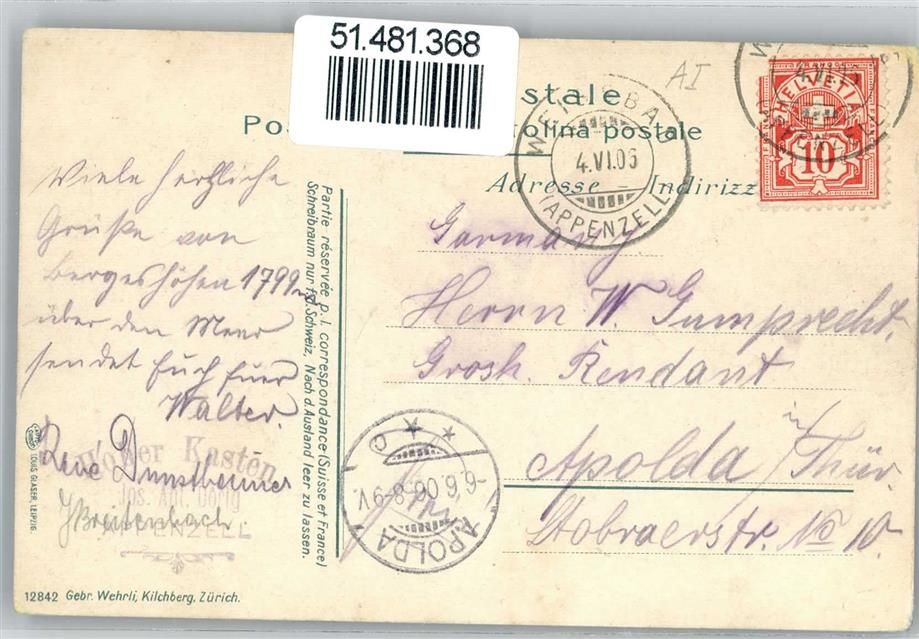 51.481.368
AI
stale
Pos
tolina postale
Adresse – Indirizz
WEISSBAD
4.VI.06
(APPENZELL)
HELVETIA
10
Viele herzliche
Grüße von
Bergeshöhen 1799 m
über den Meer
sendet Euch Euer
Walter.
René Dunstheimer
J Breitenbach
Hoher Kasten
Jos. Ant. Dörig
APPENZELL
Partie réservée p. l. correspondance (Suisse et France)
Schreibraum nur f. d. Schweiz, Nach d. Ausland leer zu lassen.
Germany
Herrn W. Gumprecht,
Grosh. Rendant
in
Apolda / Thür.
Stobraerstr. No 10.
APOLDA
6.6.06.8-9V.
LOUIS GLASER, LEIPZIG.
12842 Gebr. Wehrli, Kilchberg, Zürich.